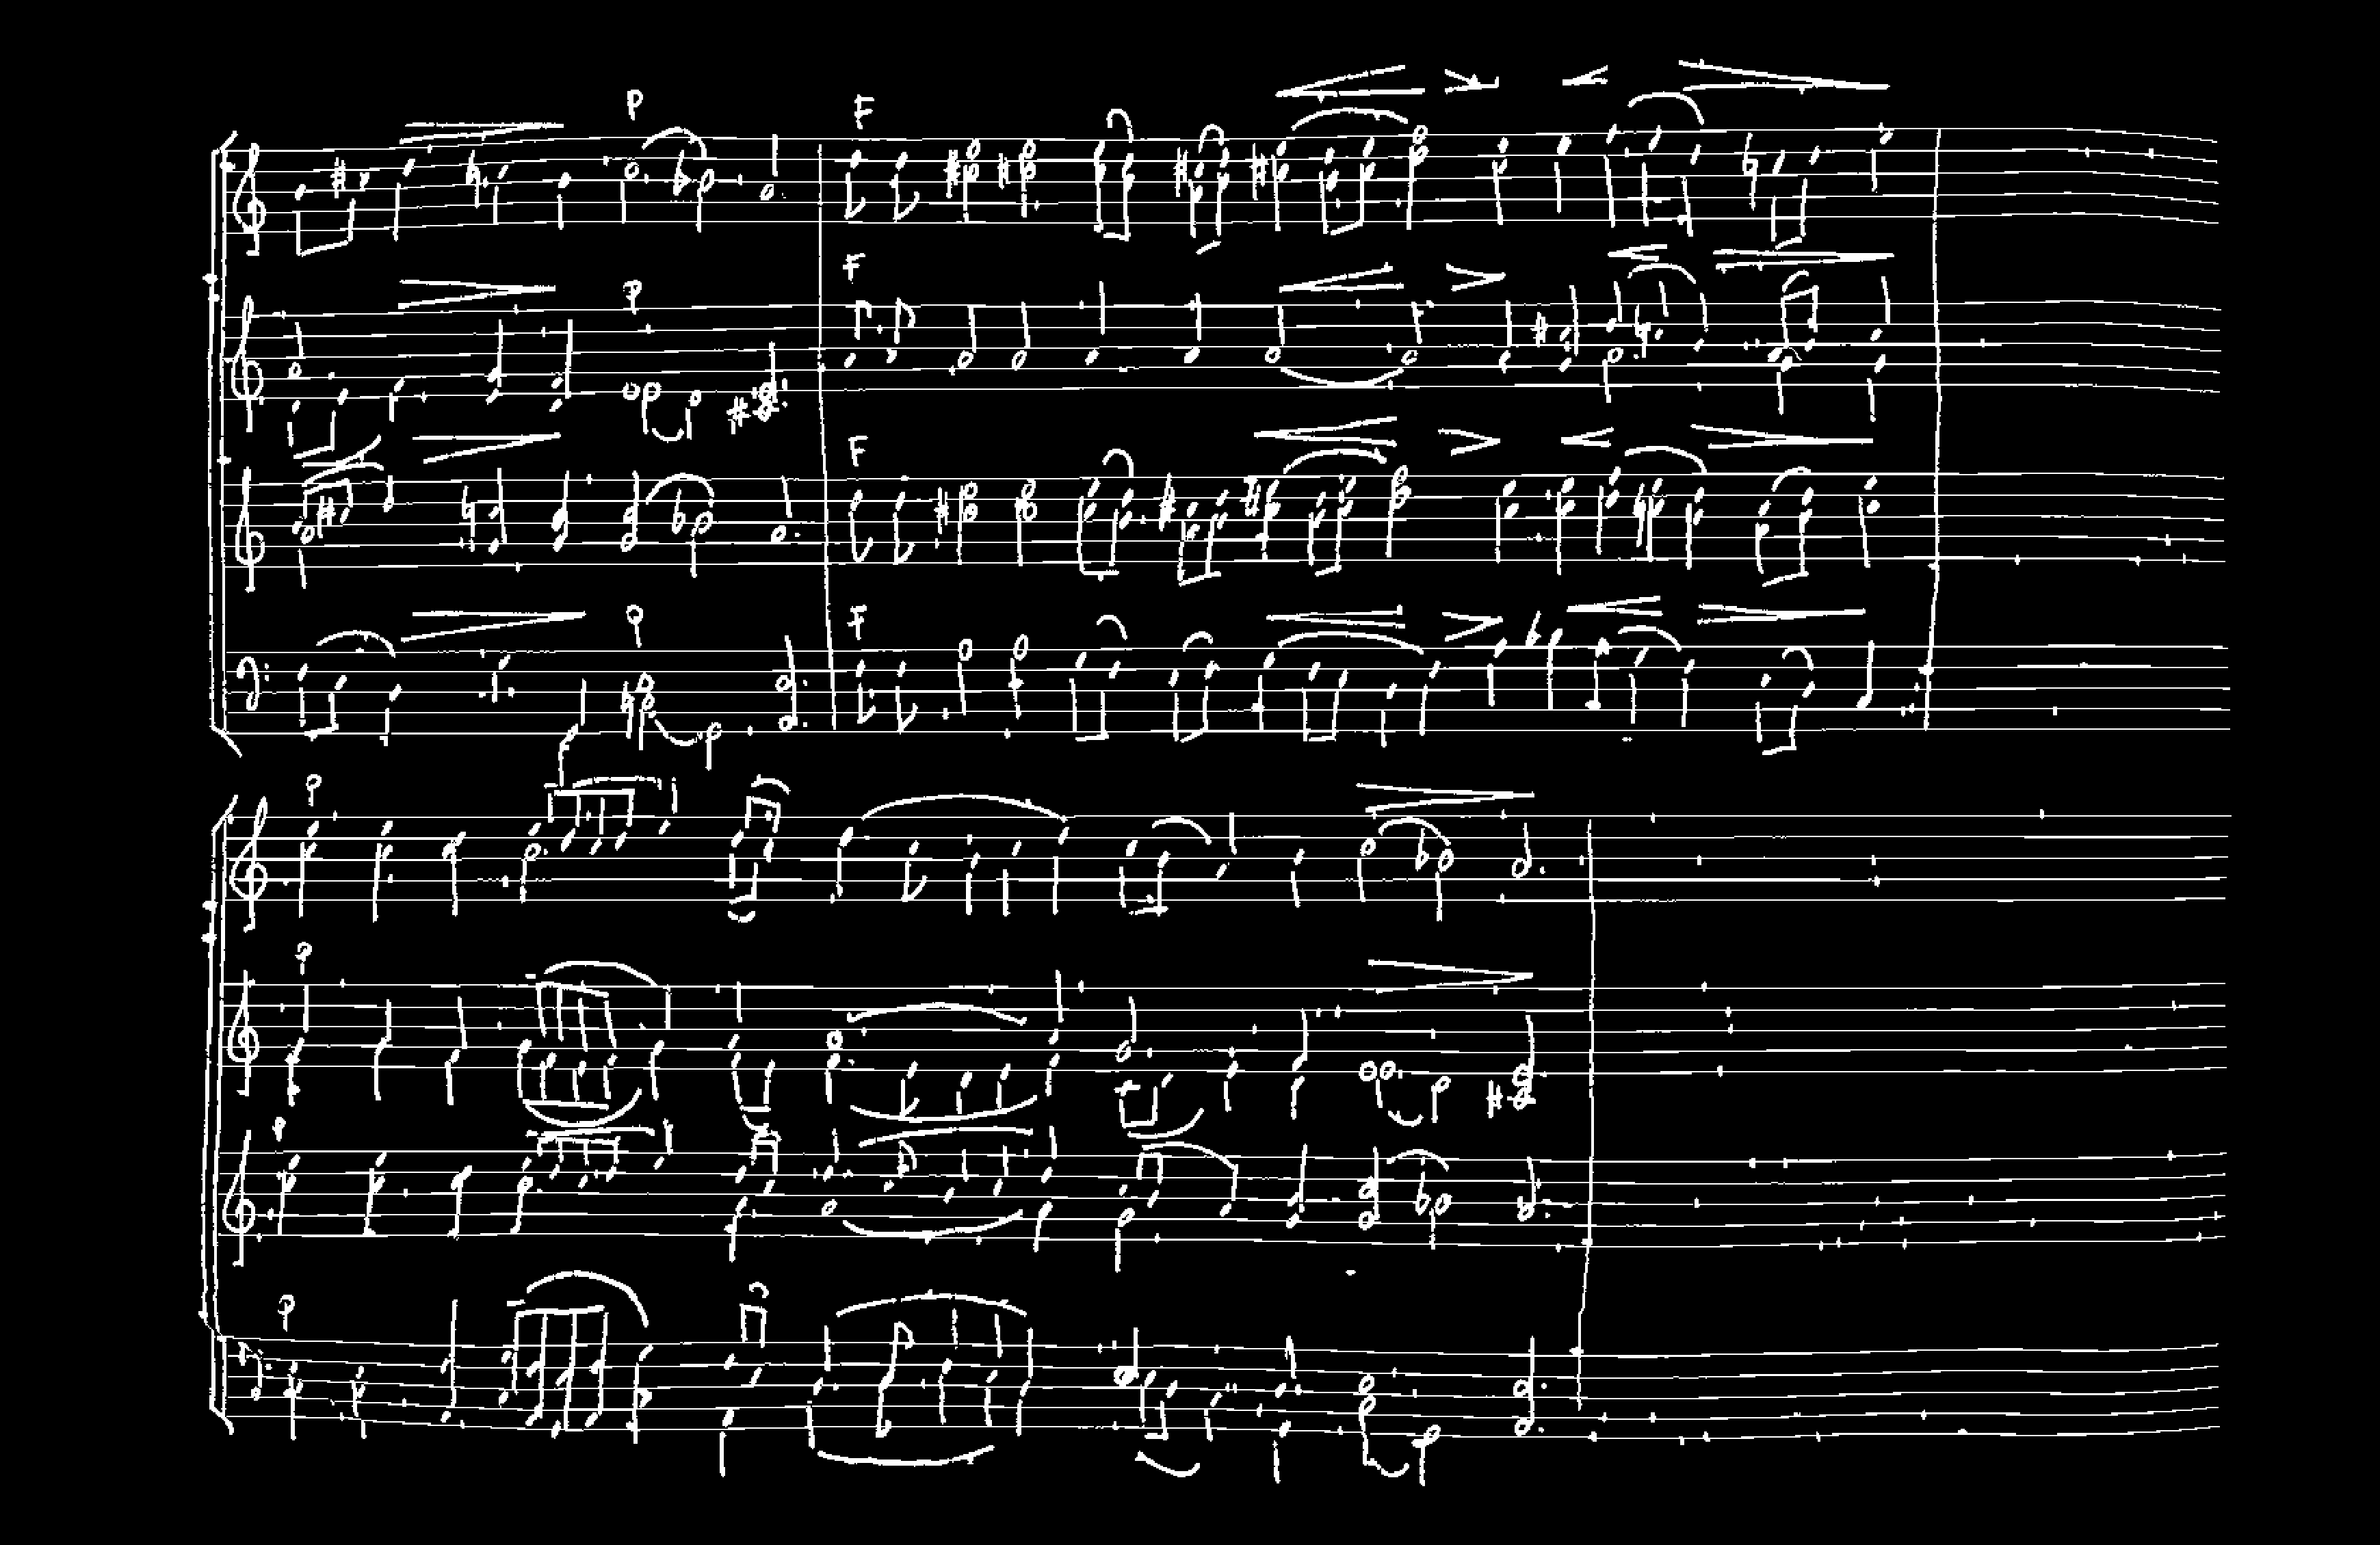 P F
F P
F
P F
P
P
P
P